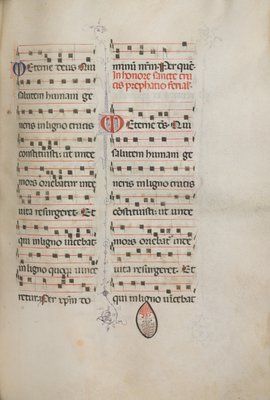 Eterne deus Qui
salutem humani ge
neris in ligno crucis
constituisti: ut unde
mors oriebatur inde
vita resurgeret. Et
qui in ligno vincebat
in ligno quoque vince
retur Per xpm do
minum nrm. Per quē
In honore sancte cru
cis prephatio ferial.
Eterne ds Qui
salutem humani ge
neris in ligno crucis
cōstituisti: ut unde
mors oriebat inde
vita resurgeret. Et
qui in ligno vincebat